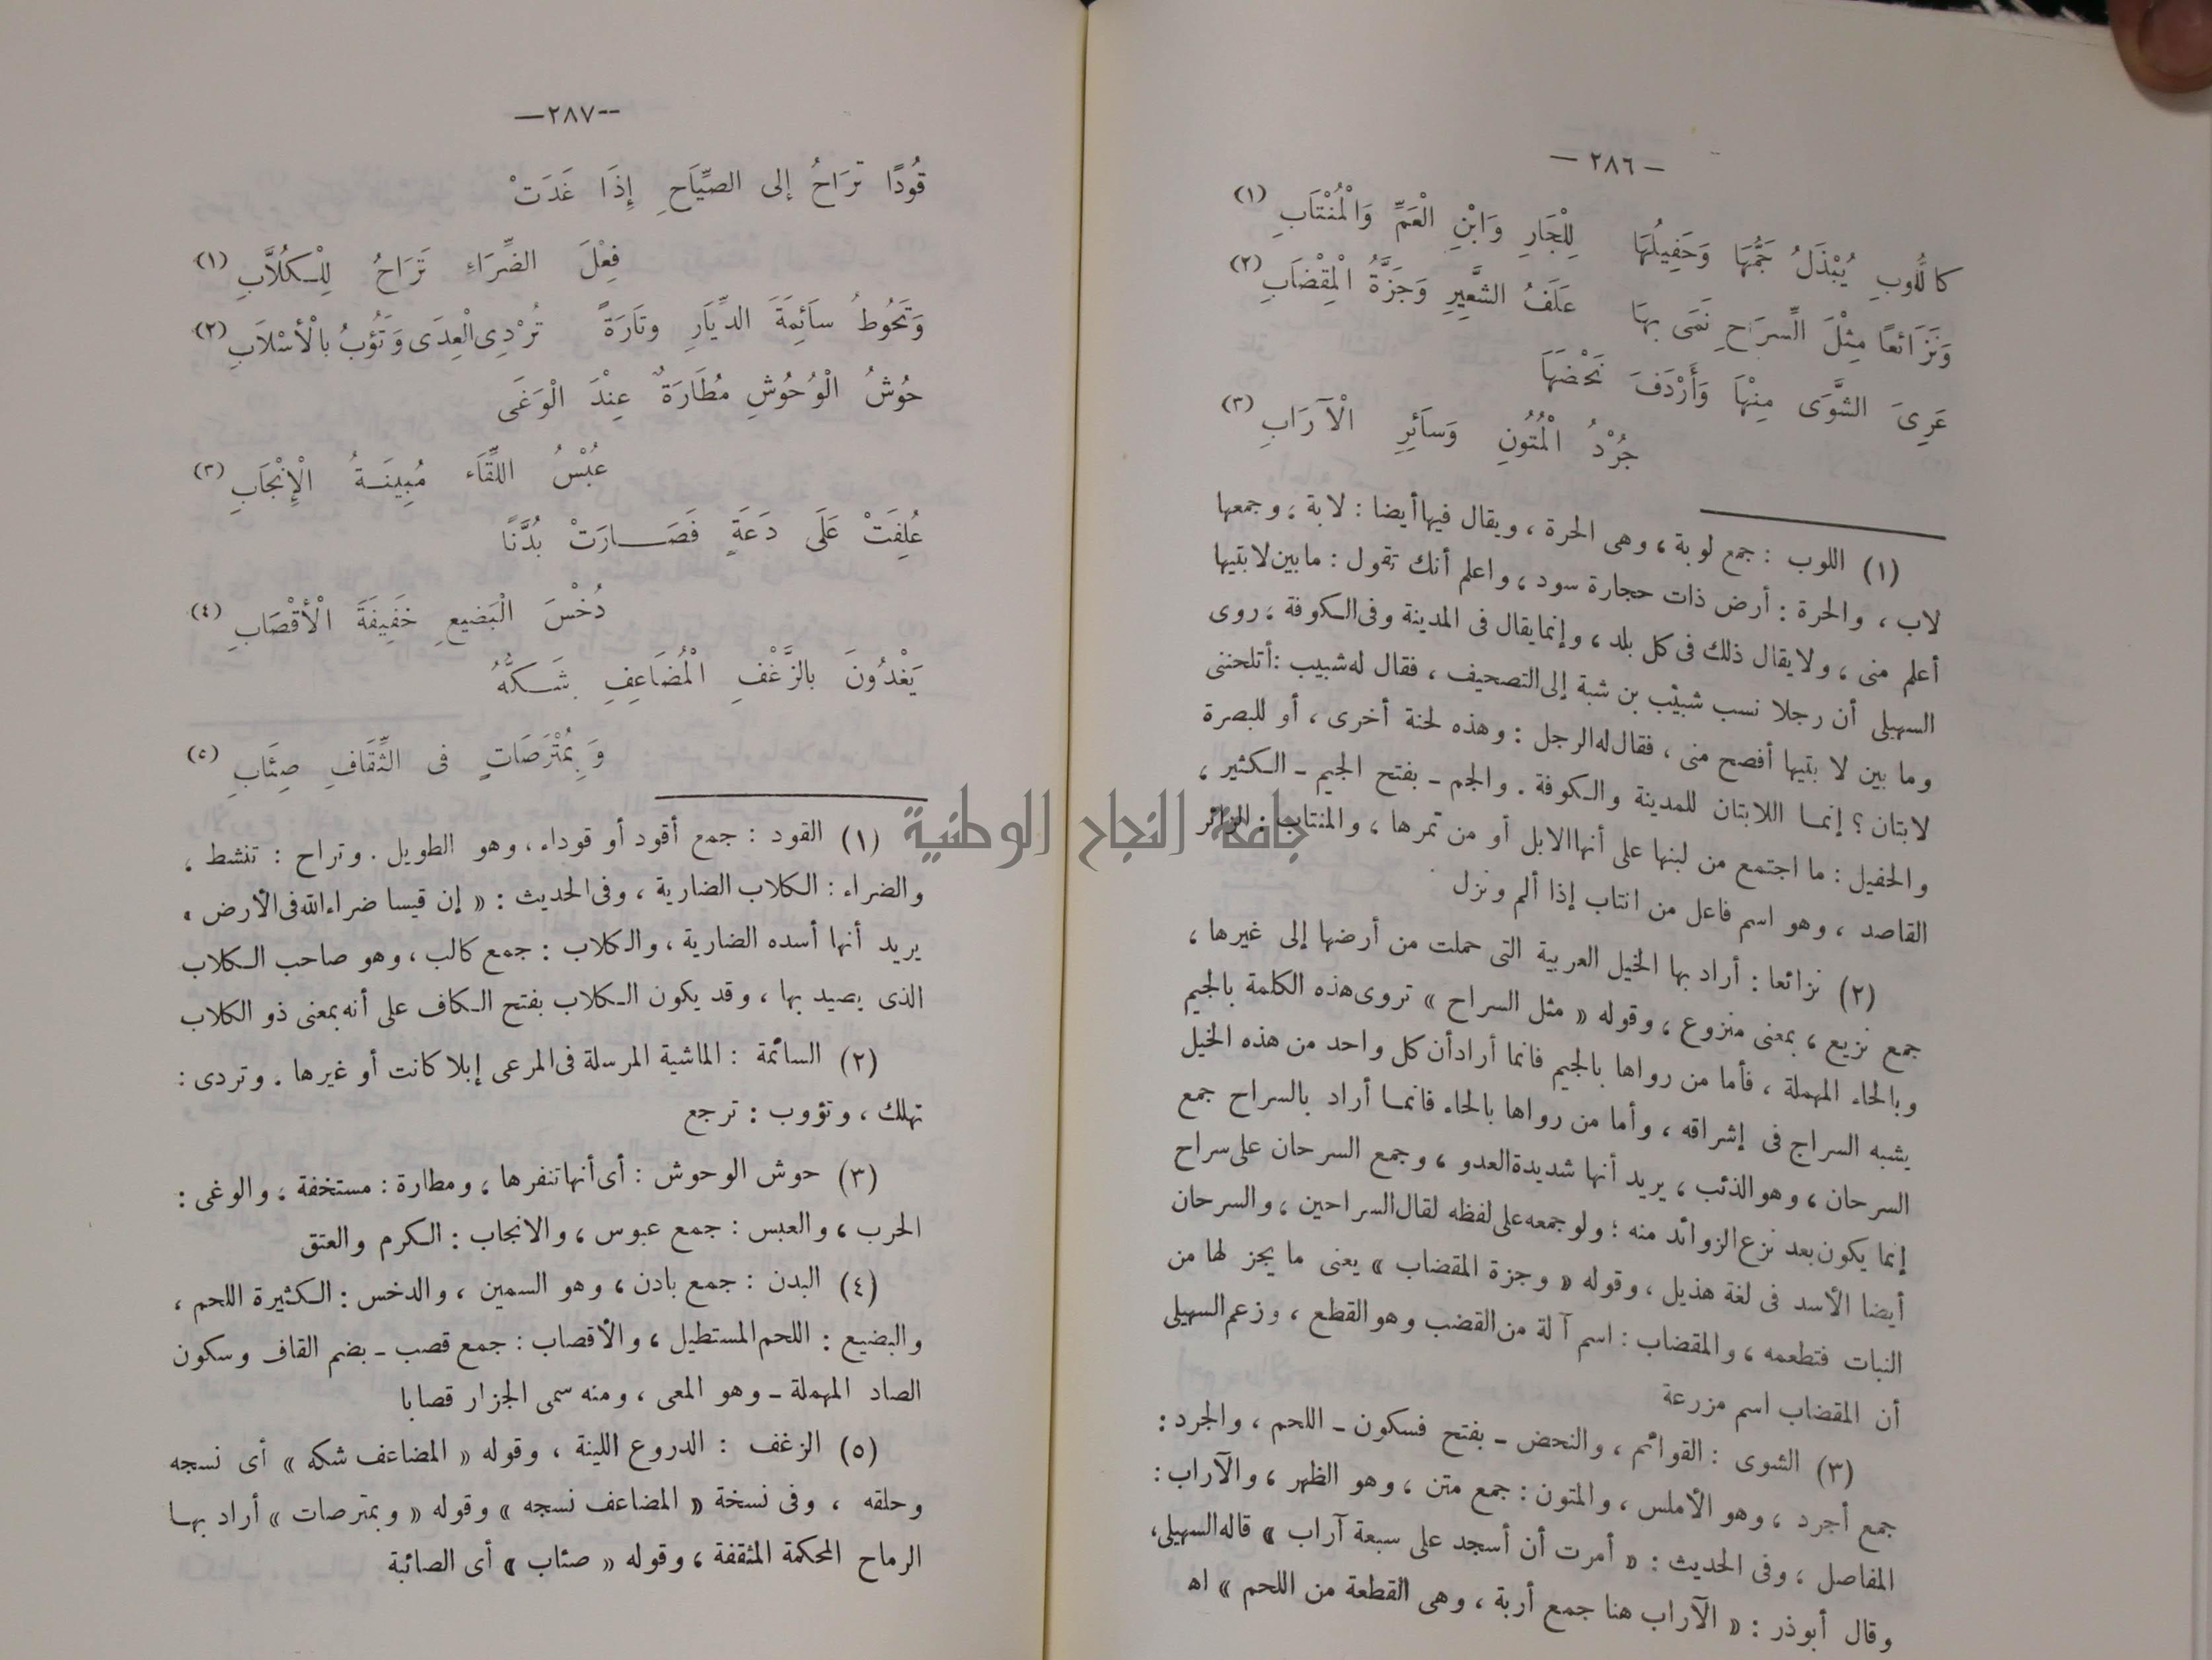 — ٢٨٦ —
كاللُّوبِ يُبْذَلُ جَمُّهَا وَحَفِيلُهَا لِلْجَارِ وَابْنِ الْعَمِّ وَالْمُنْتَابِ (١)
وَنَزَائعًا مِثْلَ السِّرَاحِ نَمَى بهَا عَلَفُ الشَّعِيرِ وَجَزَّةُ الْمِقْضَابِ (٢)
عَرِىَ الشَّوَى مِنْهَا وَأَرْدَفَ نَحْضَهَا
جُرْدُ الْمُتُونِ وَسَائِرِ الْآرَابِ (٣)
(١) اللوب : جمع لوبة ، وهى الحرة ، ويقال فيها أيضا : لابة ، وجمعها
لاب ، والحرة : أرض ذات حجارة سود ، واعلم أنك تقول : ما بين لابتيها
أعلم منى ، ولا يقال ذلك فى كل بلد ، وإنما يقال فى المدينة وفى الكوفة ، روى
السهيلى أن رجلا نسب شبيب بن شبة إلى التصحيف ، فقال له شبيب : أتلحننى
وما بين لا بتيها أفصح منى ، فقال له الرجل : وهذه لحنة أخرى ، أو للبصرة
لابتان ؟ إنما اللابتان للمدينة والكوفة . والجم ـ بفتح الجيم ـ الكثير ،
والحفيل : ما اجتمع من لبنها على أنها الابل أو من تمرها ، والمنتاب : الزائر
القاصد ، وهو اسم فاعل من انتاب إذا ألم ونزل
(٢) نزائعا : أراد بها الخيل العربية التى حملت من أرضها إلى غيرها ،
جمع نزيع ، بمعنى منزوع ، وقوله « مثل السراح » تروى هذه الكلمة بالجيم
وبالحاء المهملة ، فأما من رواها بالجيم فانما أراد أن كل واحد من هذه الخيل
يشبه السراج فى إشراقه ، وأما من رواها بالحاء فانما أراد بالسراح جمع
السرحان ، وهو الذئب ، يريد أنها شديدة العدو ، وجمع السرحان على سراح
إنما يكون بعد نزع الزوائد منه ؛ ولو جمعه على لفظه لقال السراحين ، والسرحان
أيضا الأسد فى لغة هذيل ، وقوله « وجزة المقضاب » يعنى ما يجز لها من
النبات فتطعمه ، والمقضاب : اسم آلة من القضب وهو القطع ، وزعم السهيلى
أن المقضاب اسم مزرعة
(٣) الشوى : القوائم ، والنحض ـ بفتح فسكون ـ اللحم ، والجرد :
جمع أجرد ، وهو الأملس ، والمتون : جمع متن ، وهو الظهر ، والآراب :
المفاصل ، وفى الحديث : « أمرت أن أسجد على سبعة آراب » قاله السهيلى ،
وقال أبوذر : « الآراب هنا جمع أربة ، وهى القطعة من اللحم » اه
--٢٨٧—
قُودًا تَرَاحُ إلى الصِّيَاحِ إِذَا غَدَتْ
فِعْلَ الضِّرَاءِ تَرَاحُ لِلْكُلَّابِ (١)
وَتَحُوطُ سَائِمَةَ الدِّيَارِ وتَارَةً تُرْدِى الْعِدَى وَتَؤُبُ بالْأَسْلَابِ (٢)
حُوشُ الْوُحُوشِ مُطَارَةٌ عِنْدَ الْوَغَى
عُبْسُ اللِّقَاء مُبِينَةُ الْإِنْجَابِ (٣)
عُلِفَتْ عَلَى دَعَةٍ فَصَارَتْ بُدَّنًا
دُخْسَ الْبَضيعِ خَفِيفَةَ الْأَقْصَابِ (٤)
يَغْدُونَ بالزَّغْفِ الْمُضَاعِفِ شَكُّهُ
وَبِمُتْرَصَاتٍ فى الثِّقَافِ صِئَابِ (٥)
(١) القود : جمع أقود أو قوداء ، وهو الطويل . وتراح : تنشط ،
والضراء : الكلاب الضارية ، وفى الحديث : « إن قيسا ضراء الله فى الأرض »
يريد أنها أسده الضارية ، والكلاب : جمع كالب ، وهو صاحب الكلاب
الذى يصيد بها ، وقد يكون الكلاب بفتح الكاف على أنه بمعنى ذو الكلاب
(٢) السائمة : الماشية المرسلة فى المرعى إبلا كانت أو غيرها . وتردى :
تهلك ، وتؤوب : ترجع
(٣) حوش الوحوش : أى أنها تنفرها ، ومطارة : مستخفة ، والوغى :
الحرب ، والعبس : جمع عبوس ، والانجاب : الكرم والعتق
(٤) البدن : جمع بادن ، وهو السمين ، والدخس : الكثيرة اللحم ،
والبضيع : اللحم المستطيل ، والأقصاب : جمع قصب ـ بضم القاف وسكون
الصاد المهملة ـ وهو المعى ، ومنه سمى الجزار قصابا
(٥) الزغف : الدروع اللينة ، وقوله « المضاعف شكه » أى نسجه
وحلقه ، وفى نسخة « المضاعف نسجه » وقوله « وبمترصات » أراد بها
الرماح المحكمة المثقفة ، وقوله « صئاب » أى الصائبة
جامعة النجاح الوطنية